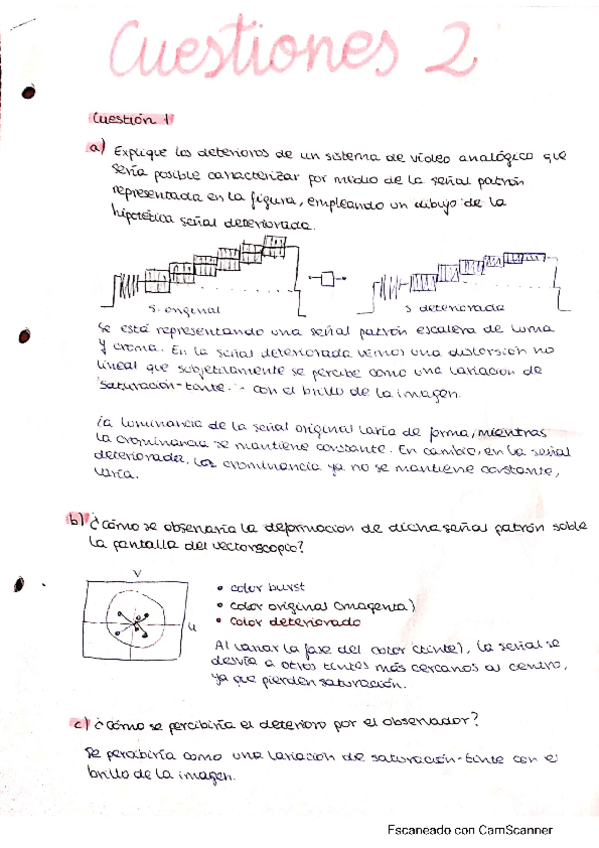 Cuestiones 2
Cuestión 1
a) Explique los deterioros de un sistema de vídeo analógico que
sería posible caracterizar por medio de la señal patrón
representada en la figura, empleando un dibujo de la
hipotética señal deteriorada.
S. original
S deteriorada
Se está representando una señal patrón escalera de luma
y croma. En la señal deteriorada vemos una distorsión no
lineal que subjetivamente se percibe como una variación de
"saturación-tinte" - con el brillo de la imagen.
La luminancia de la señal original varía de forma, mientras
la crominancia se mantiene constante. En cambio, en la señal
deteriorada, la crominancia ya no se mantiene constante,
varía.
b) ¿Cómo se observaría la deformación de dicha señal patrón sobre
la pantalla del vectorscopio?
V
u
• color burst
• color original (magenta)
• color deteriorado
Al variar la fase del color (tinte), la señal se
desvía a otros tintes más cercanos al centro,
ya que pierden saturación.
c) ¿Cómo se percibiría el deterioro por el observador?
Se percibiría como una variación de saturación-tinte con el
brillo de la imagen.
Escaneado con CamScanner